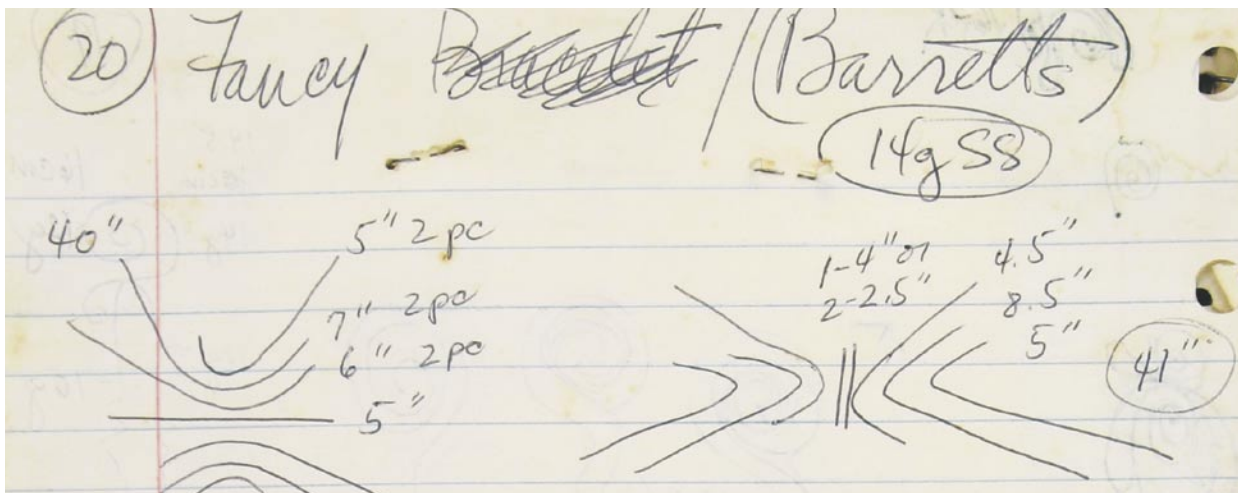 20 Fancy Bracelet / (Barretts)
14g SS
40" 5" 2 pc
7" 2 pc
6" 2 pc
5"
1-4" or
2-2.5"
4.5"
8.5"
5"
41"